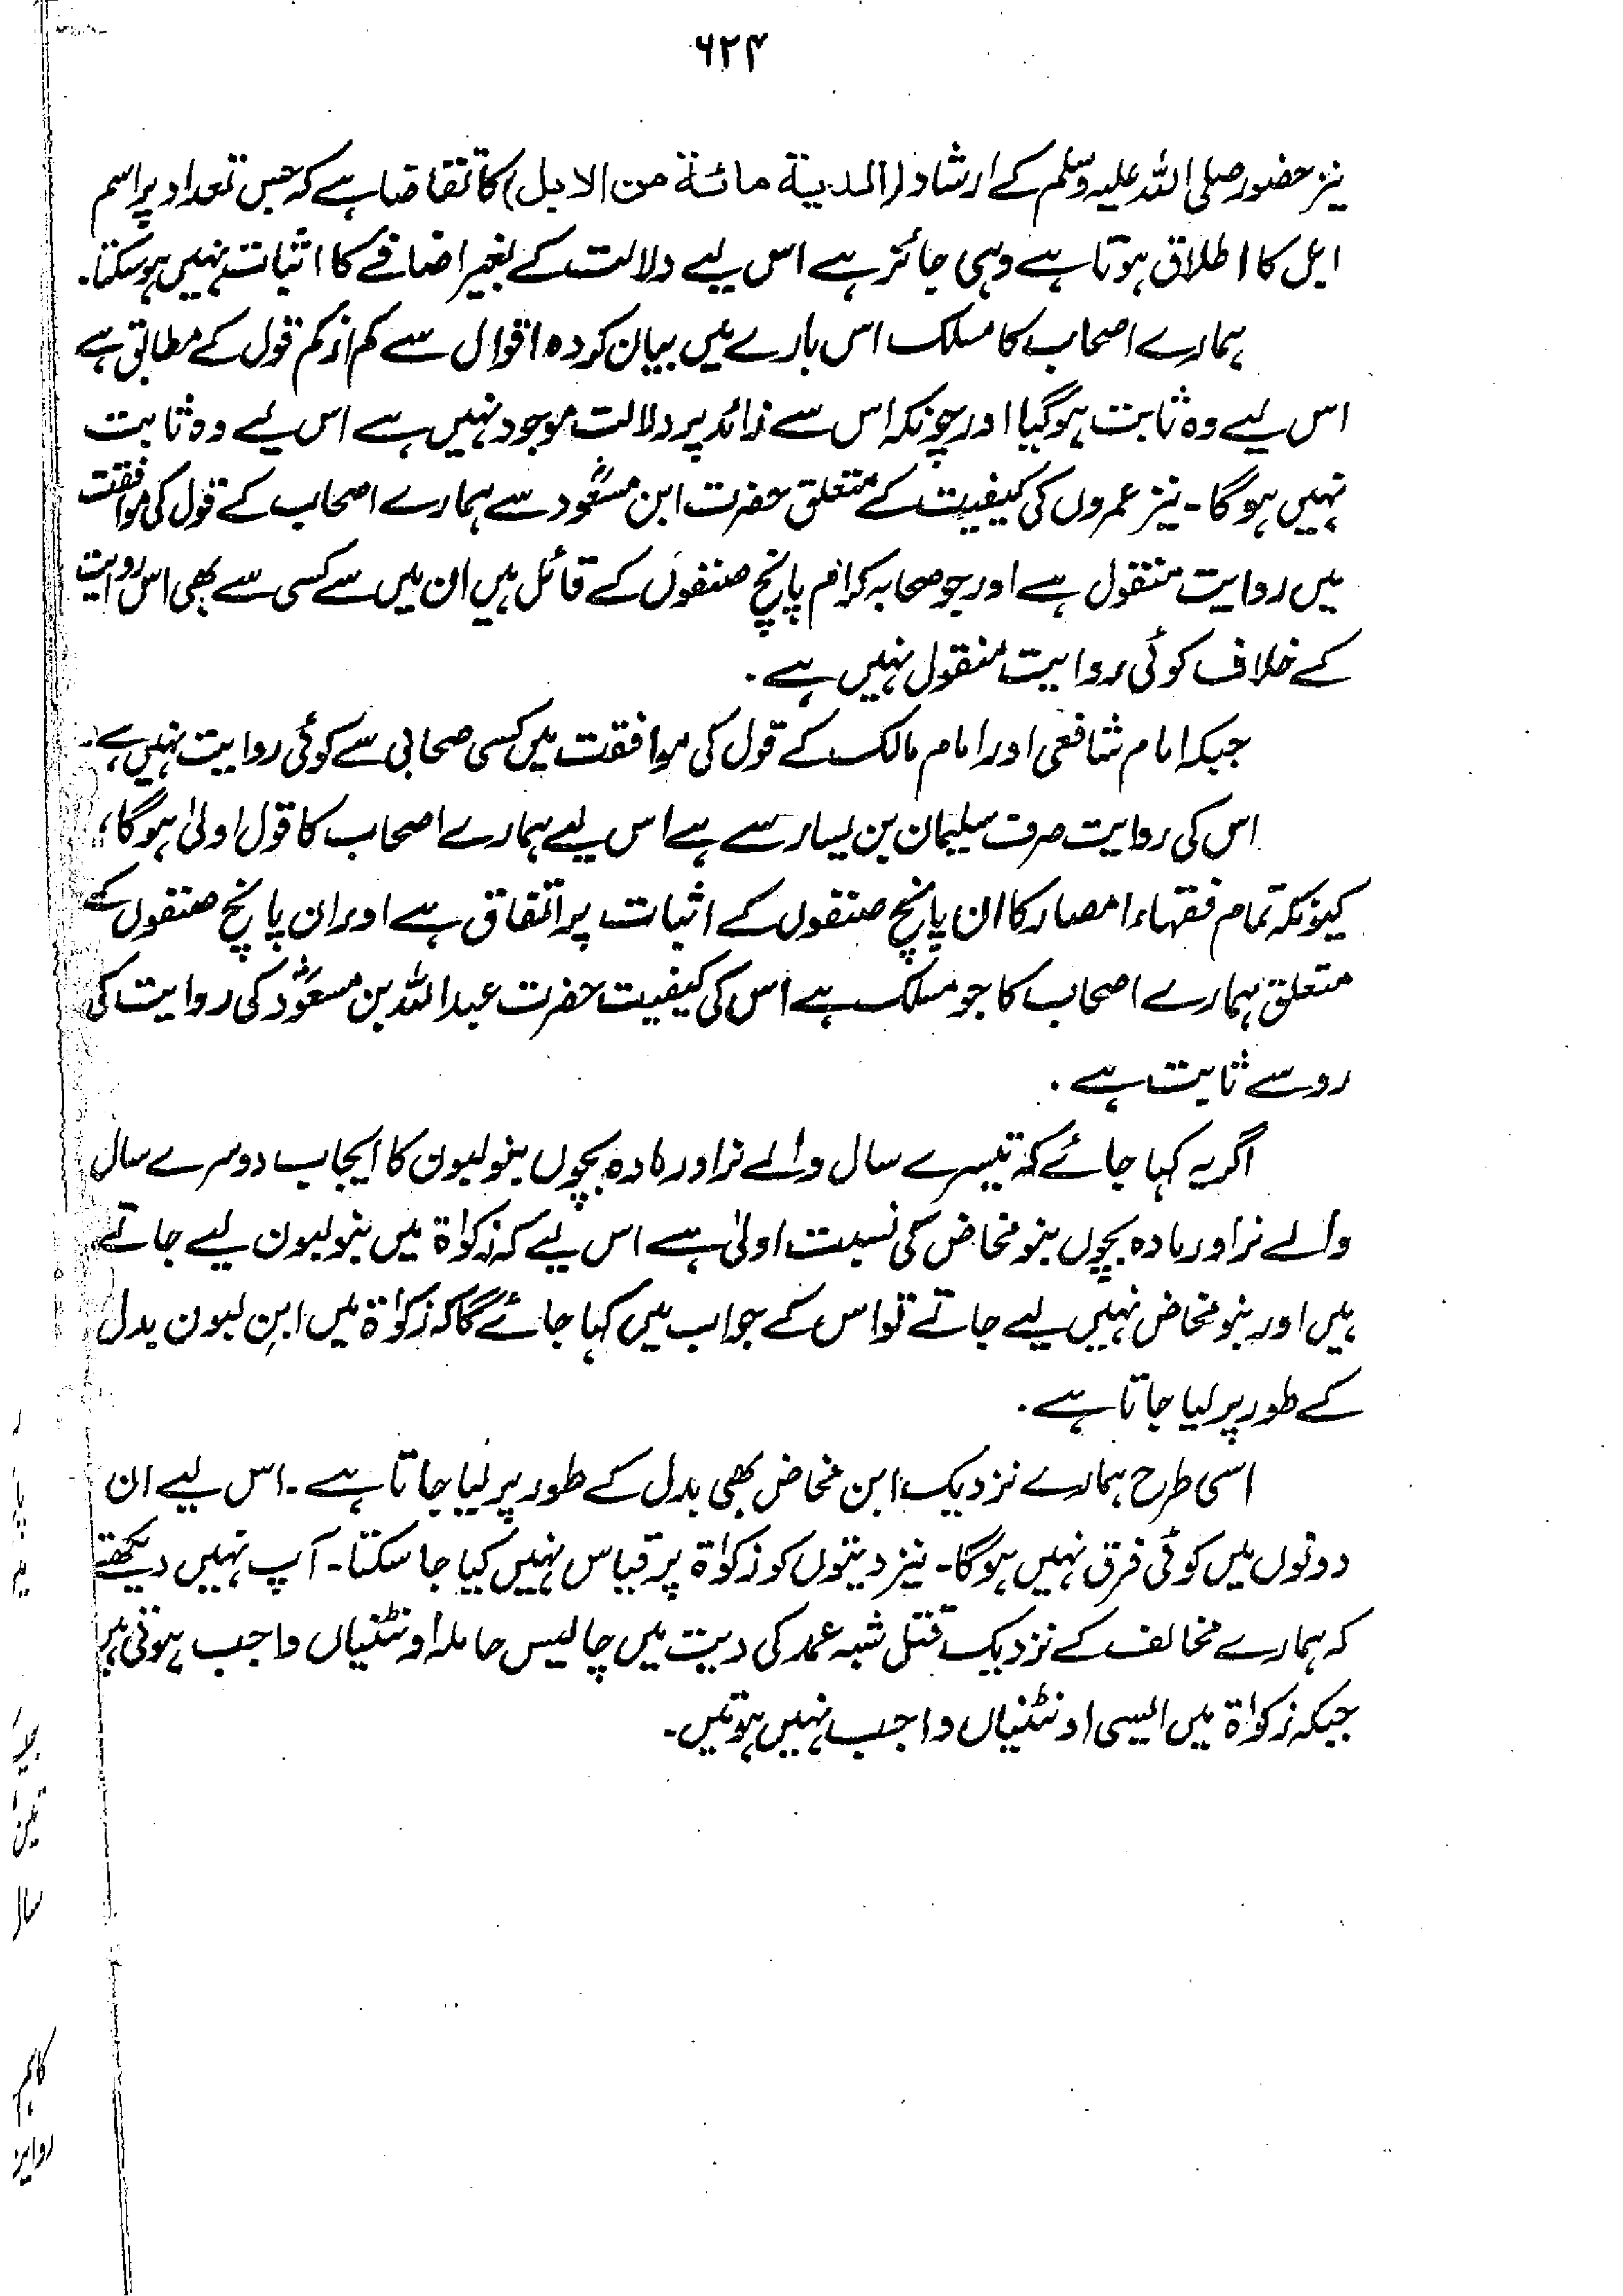 ۶۲۴
نیز حضور صلی اللہ علیہ وسلم کے ارشاد (الدية مائة من الابل) کا تقاضا ہے کہ جس تعداد پر اسم
ابل کا اطلاق ہوتا ہے وہی جائز ہے اس لیے دلالت کے بغیر اضافے کا اثبات نہیں ہو سکتا۔
ہمارے اصحاب کا مسلک اس بارے میں بیان کردہ اقوال سے کم از کم قول کے مطابق ہے
اس لیے وہ ثابت ہو گیا اور چونکہ اس سے زائد پر دلالت موجود نہیں ہے اس لیے وہ ثابت
نہیں ہو گا۔ نیز عمروں کی کیفیت کے متعلق حضرت ابن مسعودؓ سے ہمارے اصحاب کے قول کی موافقت
میں روایت منقول ہے اور جو صحابہ کرام پانچ صنفوں کے قائل ہیں ان میں سے کسی سے بھی اس روایت
کے خلاف کوئی روایت منقول نہیں ہے۔
جبکہ امام شافعی اور امام مالک کے قول کی موافقت میں کسی صحابی سے کوئی روایت نہیں ہے۔
اس کی روایت صرف سلیمان بن یسار سے ہے اس لیے ہمارے اصحاب کا قول اولیٰ ہو گا؛
کیونکہ تمام فقہاء امصار کا ان پانچ صنفوں کے اثبات پر اتفاق ہے اور ان پانچ صنفوں کے
متعلق ہمارے اصحاب کا جو مسلک ہے اس کی کیفیت حضرت عبداللہ بن مسعودؓ کی روایت کی
رو سے ثابت ہے۔
اگر یہ کہا جائے کہ تیسرے سال والے نر اور مادہ بچوں بنو لبون کا ایجاب دوسرے سال
والے نر اور مادہ بچوں بنو مخاض کی نسبت اولیٰ ہے اس لیے کہ زکوٰۃ میں بنو لبون لیے جاتے
ہیں اور بنو مخاض نہیں لیے جاتے تو اس کے جواب میں کہا جائے گا کہ زکوٰۃ میں ابنِ لبون بدل
کے طور پر لیا جاتا ہے۔
اسی طرح ہمارے نزدیک ابن مخاض بھی بدل کے طور پر لیا جاتا ہے۔ اس لیے ان
دونوں میں کوئی فرق نہیں ہو گا۔ نیز دیتوں کو زکوٰۃ پر قیاس نہیں کیا جا سکتا۔ آپ نہیں دیکھتے
کہ ہمارے مخالف کے نزدیک قتل شبہ عمد کی دیت میں چالیس حاملہ اونٹنیاں واجب ہوتی ہیں
جبکہ زکوٰۃ میں ایسی اونٹنیاں واجب نہیں ہوتیں۔
سال